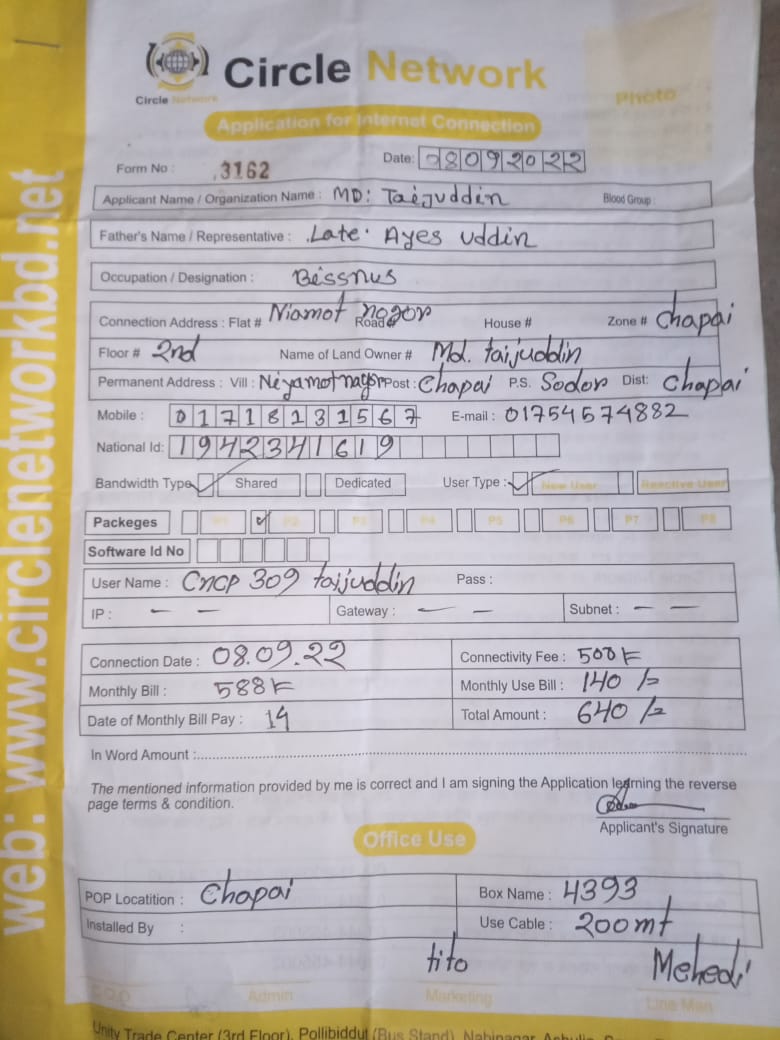 Circle Network
Circle Network
Photo
Application for Internet Connection
Form No : 3162 Date: 08092022
Applicant Name / Organization Name : MD: Taijuddin Blood Group :
Father's Name / Representative : Late. Ayes uddin
Occupation / Designation : Bissnus
Connection Address : Flat # Niamot nogor Road # House # Zone # Chapai
Floor # 2nd Name of Land Owner # Md. taijuddin
Permanent Address : Vill : Niyamotnagor Post : Chapai P.S. Sodor Dist: Chapai
Mobile : 01718131567 E-mail : 01754574882
National Id: 1942341619
Bandwidth Type Shared Dedicated User Type : New User Reactive User
Packeges P1 P2 P3 P4 P5 P6 P7 P8
Software Id No
User Name : CNCP 309 taijuddin Pass :
IP : — — Gateway : — — Subnet : — —
Connection Date : 08.09.22 Connectivity Fee : 500
Monthly Bill : 588 Monthly Use Bill : 140 /=
Date of Monthly Bill Pay : 14 Total Amount : 640 /=
In Word Amount :
The mentioned information provided by me is correct and I am signing the Application lerning the reverse
page terms & condition.
Applicant's Signature
Office Use
POP Locatition : Chapai Box Name : 4393
Installed By : Use Cable : 200mt
tito Mehedi
Admin Marketing Line Man
Unity Trade Center (3rd Floor), Pollibiddut (Bus Stand), Nabinagar,
web: www.circlenetworkbd.net